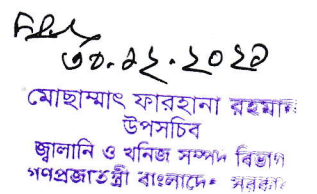 ৩০.১২.২০২১
মোছাম্মাৎ ফারহানা রহমান
উপসচিব
জ্বালানি ও খনিজ সম্পদ বিভাগ
গণপ্রজাতন্ত্রী বাংলাদেশ সরকার